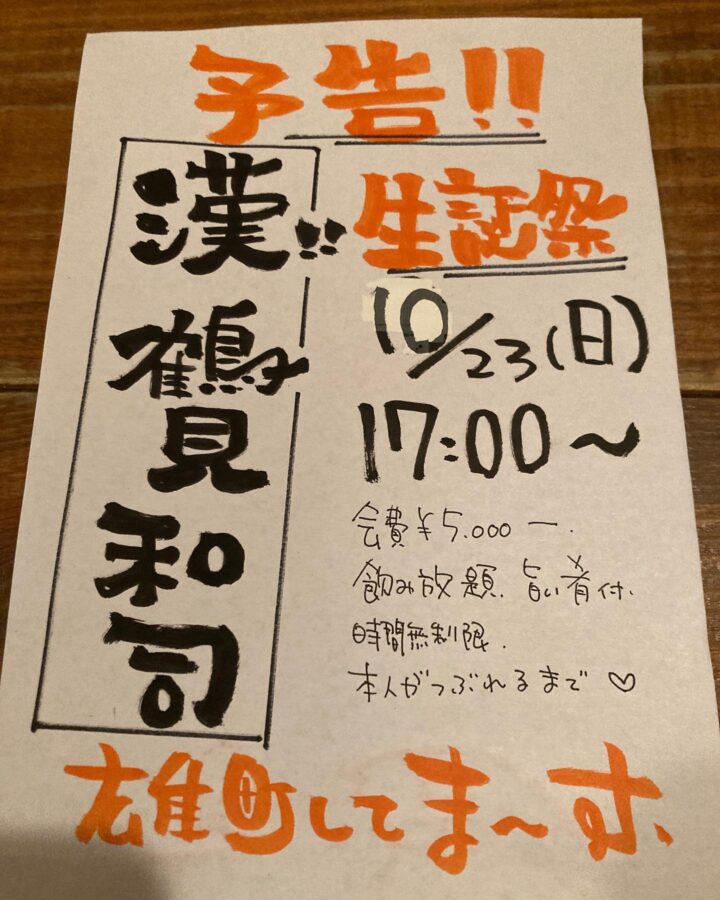 予告!!
漢!!
鶴見和司
生誕祭
10/23(日)
17:00~
会費¥5.000ー.
飲み放題.旨い肴付.
時間無制限.
本人がつぶれるまで♡
雄町してま~す.